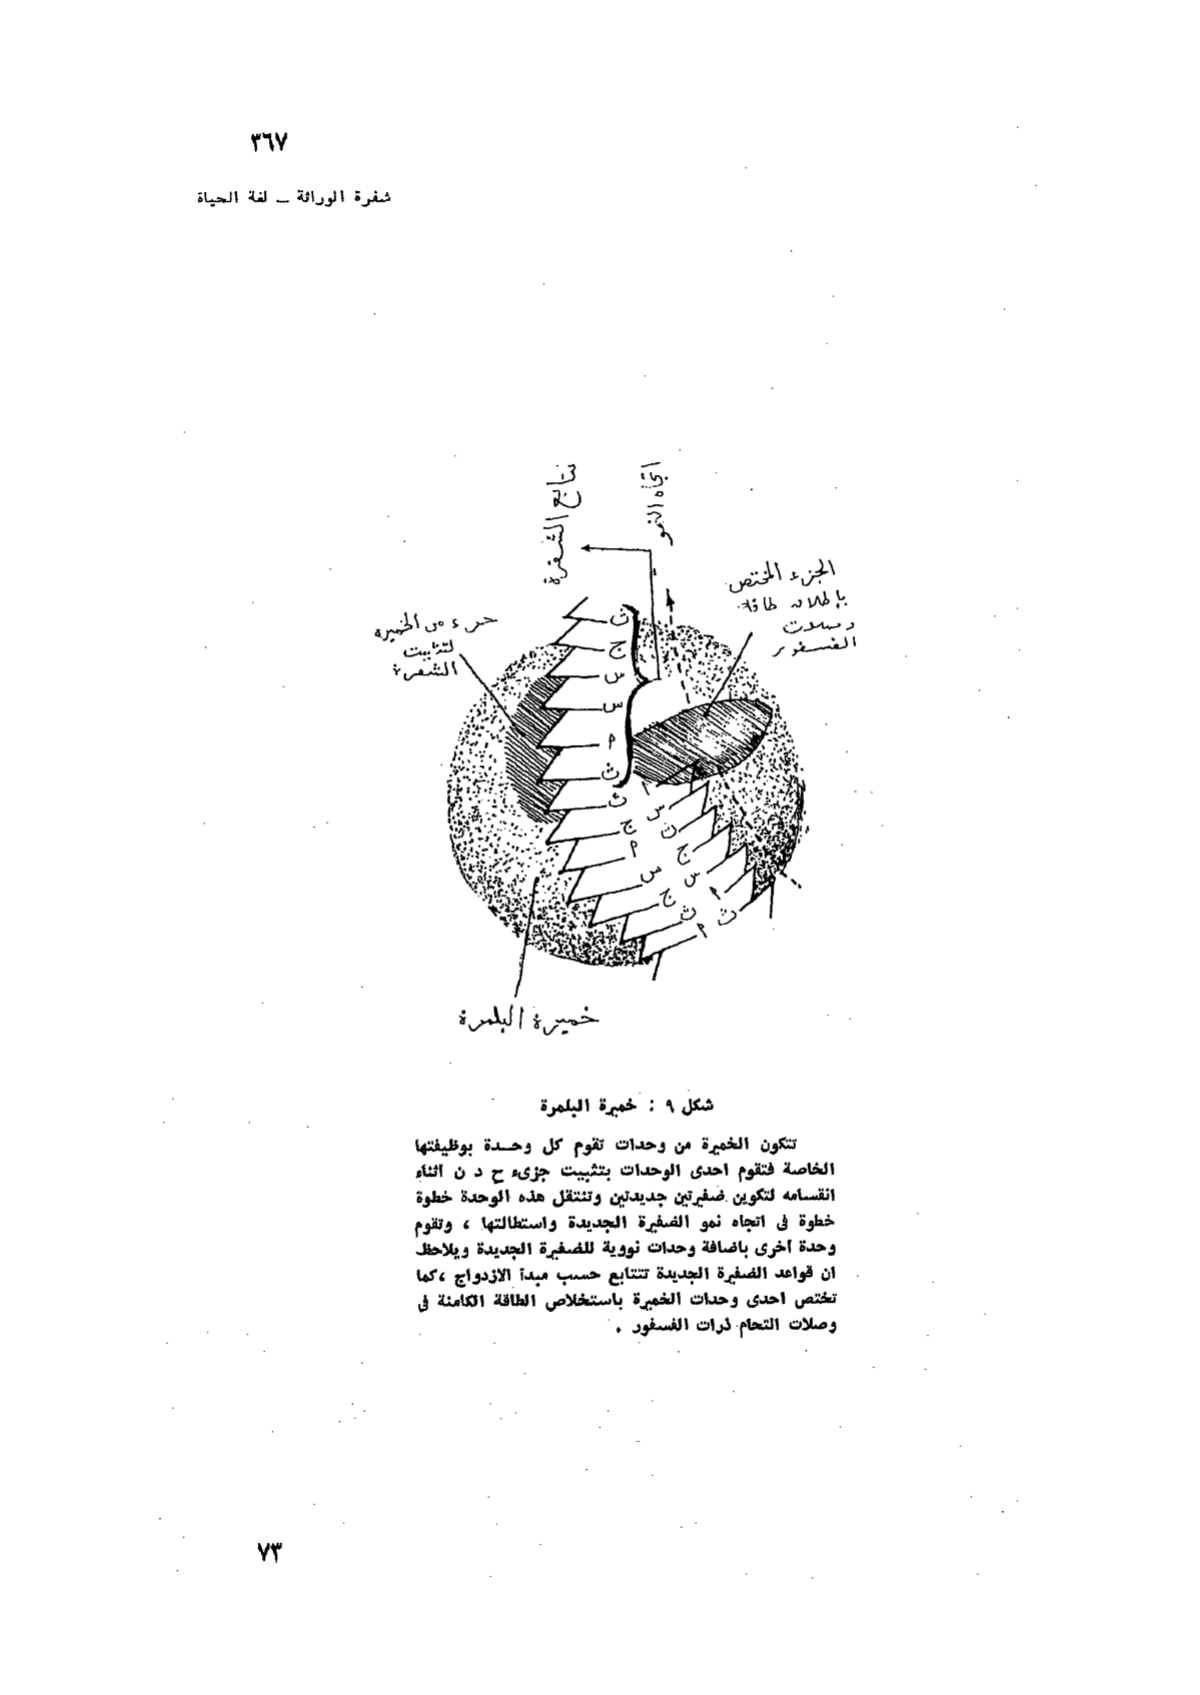 ٣٦٧
شفرة الوراثة ــ لغة الحياة
تتابع الشفرة
اتجاه النمو
الجزء المختص
بإطلاق طاقة
وصلات
الفسفور
جزء من الخميرة
لتثبيت
الشفرة
ث
ج
س
س
م
ث
ث
ج
م
س
ج
ث
م
م
س
ث
ج
س
م
ث
خميرة البلمرة
شكل ٩ : خميرة البلمرة
تتكون الخميرة من وحدات تقوم كل وحــدة بوظيفتها
الخاصة فتقوم احدى الوحدات بتثبيت جزىء ح د ن اثناء
انقسامه لتكوين ضفيرتين جديدتين وتنتقل هذه الوحدة خطوة
خطوة فى اتجاه نمو الضفيرة الجديدة واستطالتها ، وتقوم
وحدة أخرى باضافة وحدات نووية للضفيرة الجديدة ويلاحظ
ان قواعد الضفيرة الجديدة تتتابع حسب مبدأ الازدواج ، كما
تختص احدى وحدات الخميرة باستخلاص الطاقة الكامنة فى
وصلات التحام ذرات الفسفور .
٧٣